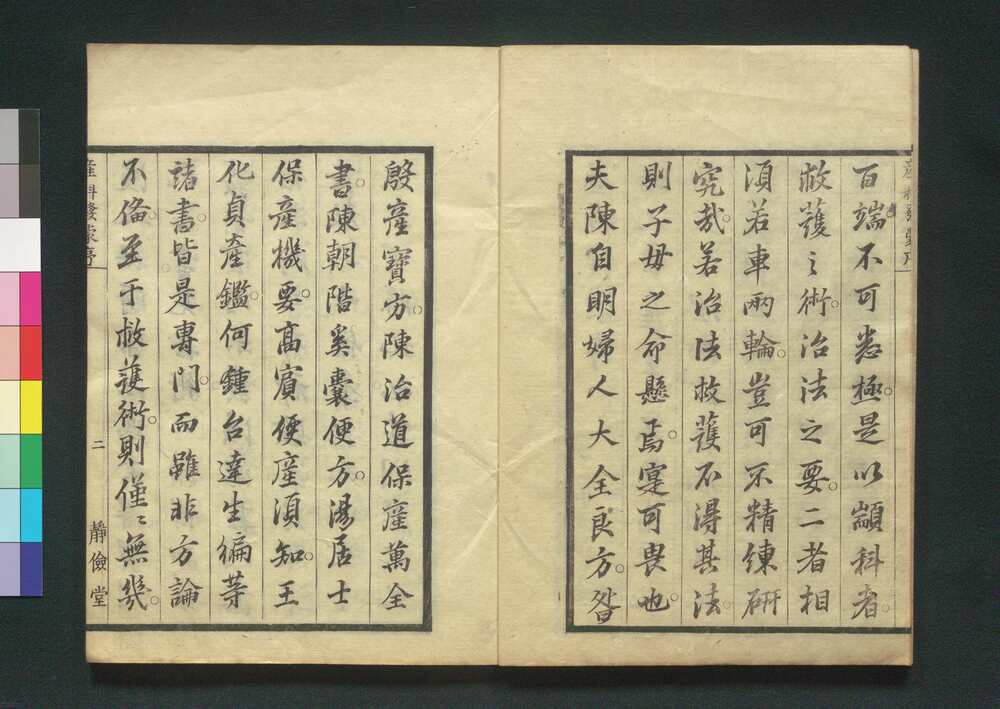 產科發蒙序
百端不可悉極。是以顓科者。
救護之術。治法之要。二者相
須若車兩輪。豈可不精練研
究哉。若治法救護不得其法。
則子母之命懸焉。寔可畏也。
夫陳自明婦人大全良方。昝
殷產寶方。陳治道保產萬全
書。陳朝階奚囊便方。湯居士
保產機要。高賓便產須知。王
化貞產鑑。何鍾台達生編等
諸書。皆是專門。而雖非方論
不備。至于救護術。則僅〻無幾。
產科發蒙序
二
靜儉堂